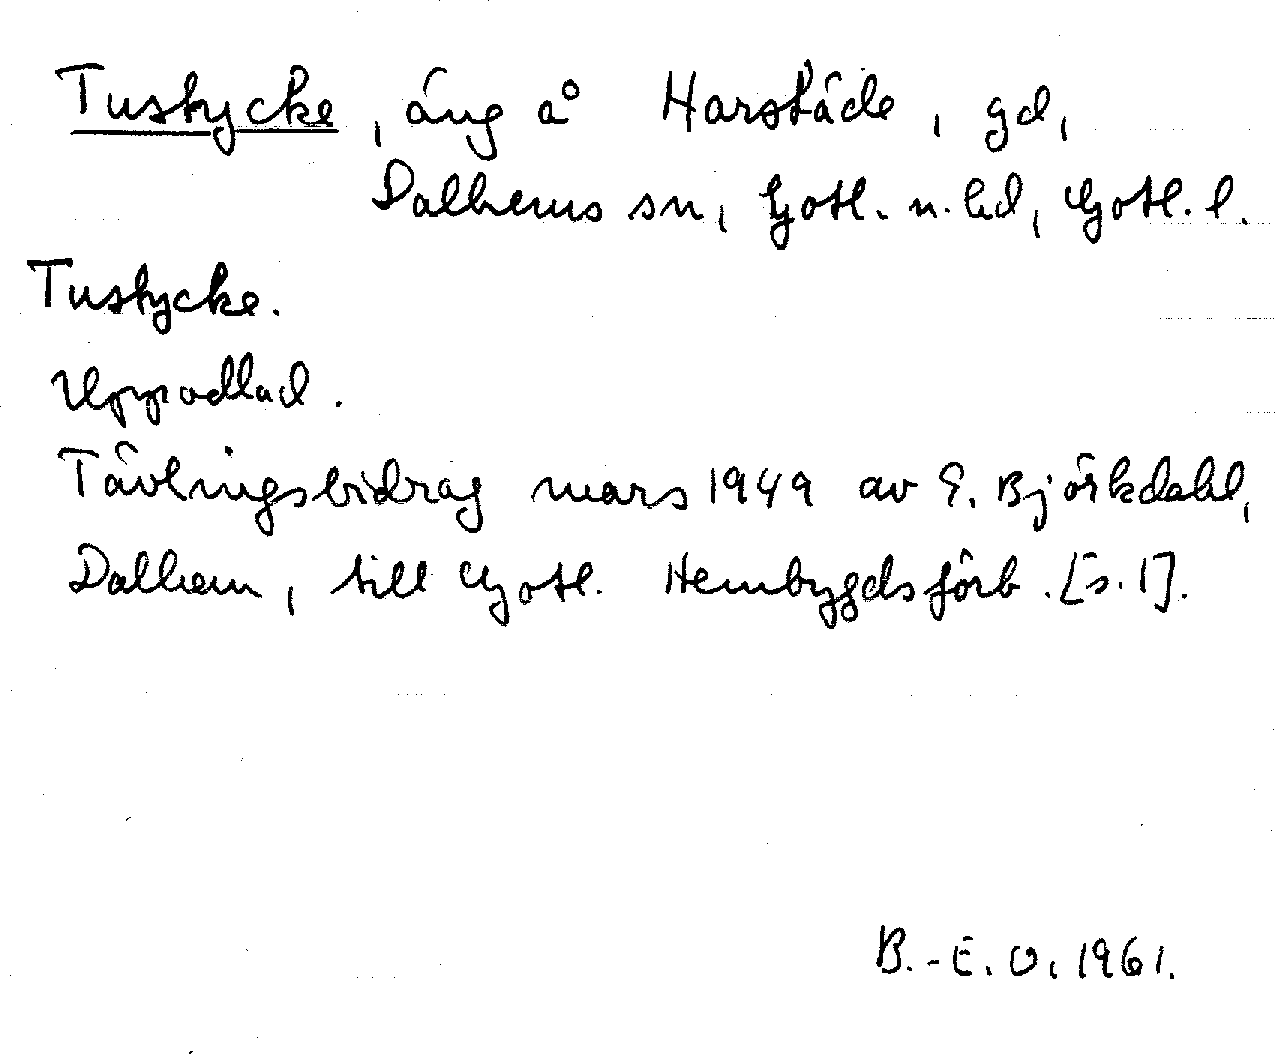 Tustycke, äng å Harstäde, gd,
Dalhems sn, Gotl. n. hd, Gotl. l.
Tustycke.
Uppodlad.
Tävlingsbidrag mars 1949 av E. Björkdahl,
Dalhem, till Gotl. Hembygdsförb. [s. 1].
B.-E. O. 1961.